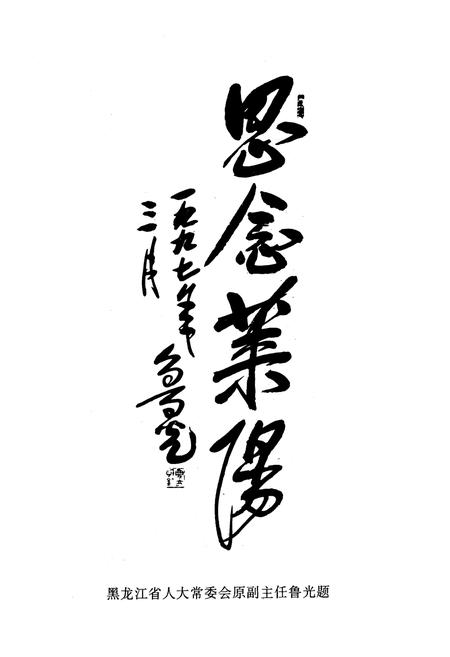 思念莱阳
一九九七年
三月
鲁光
黑龙江省人大常委会原副主任鲁光题